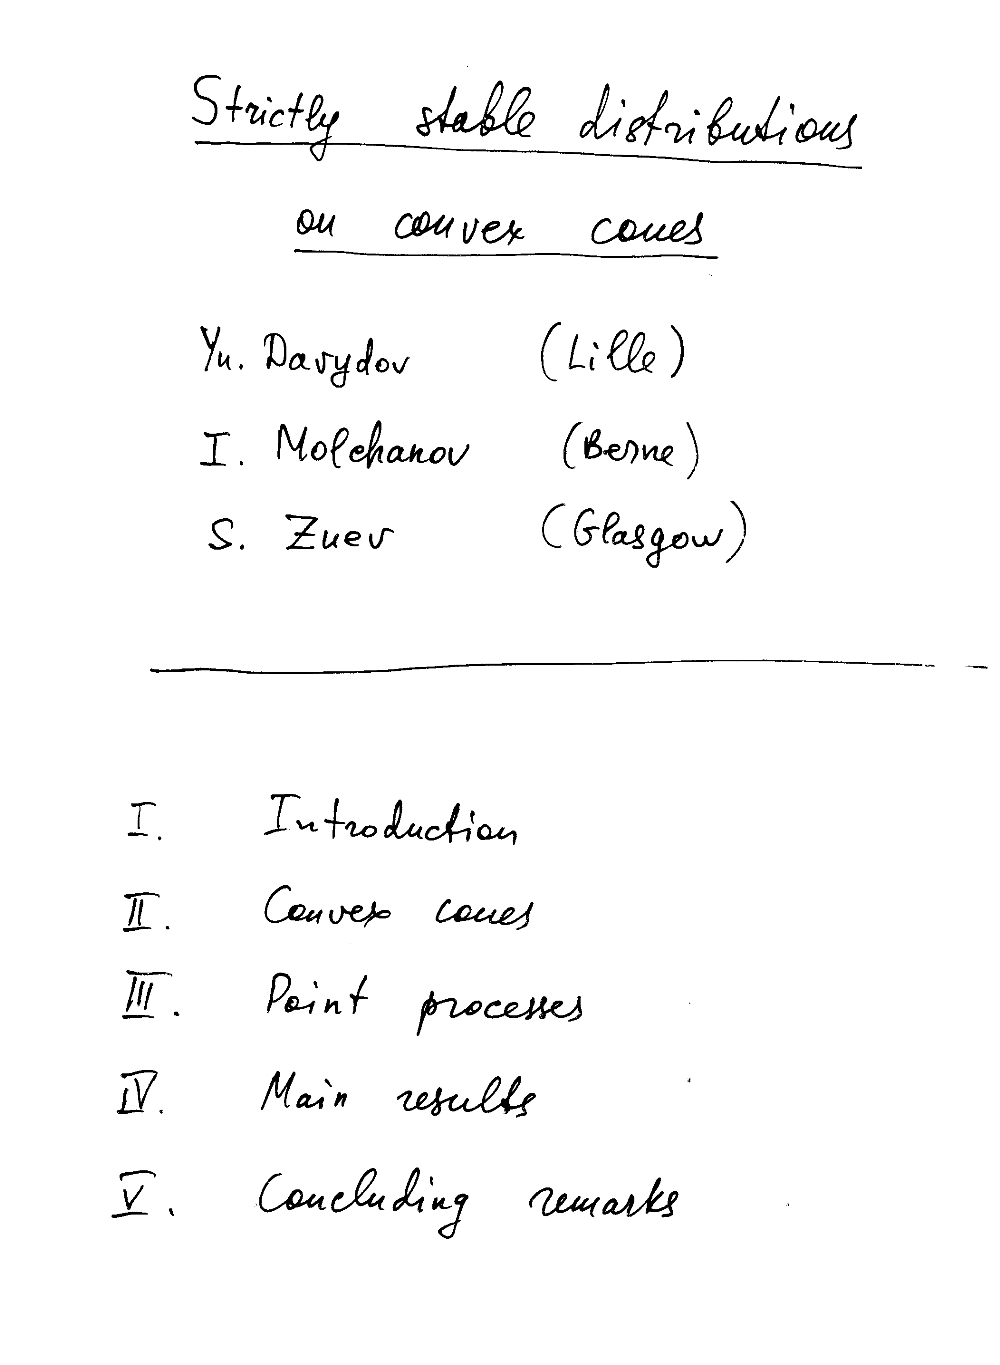 Strictly stable distributions
on convex cones
Yu. Davydov (Lille)
I. Molchanov (Berne)
S. Zuev (Glasgow)
I. Introduction
II. Convex cones
III. Point processes
IV. Main results
V. Concluding remarks